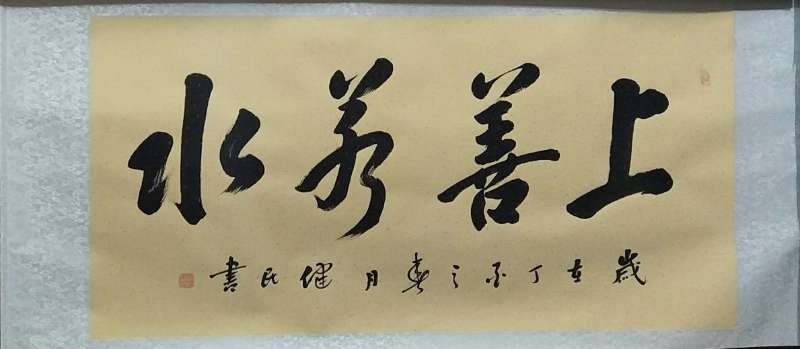 上善若水
歲在丁酉之春月健民書